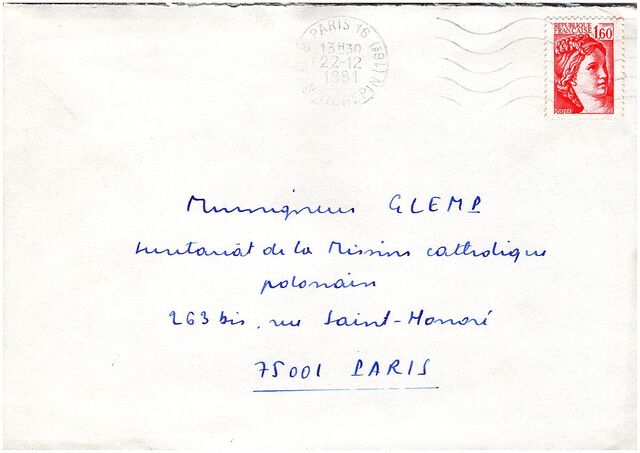 PARIS 16
13H30
22-12
1981
REPUBLIQUE
FRANÇAISE
1,60
POSTES
Monseigneur GLEMP
secretariat de la Mission catholique
polonaise
263 bis, rue Saint-Honoré
75001 PARIS